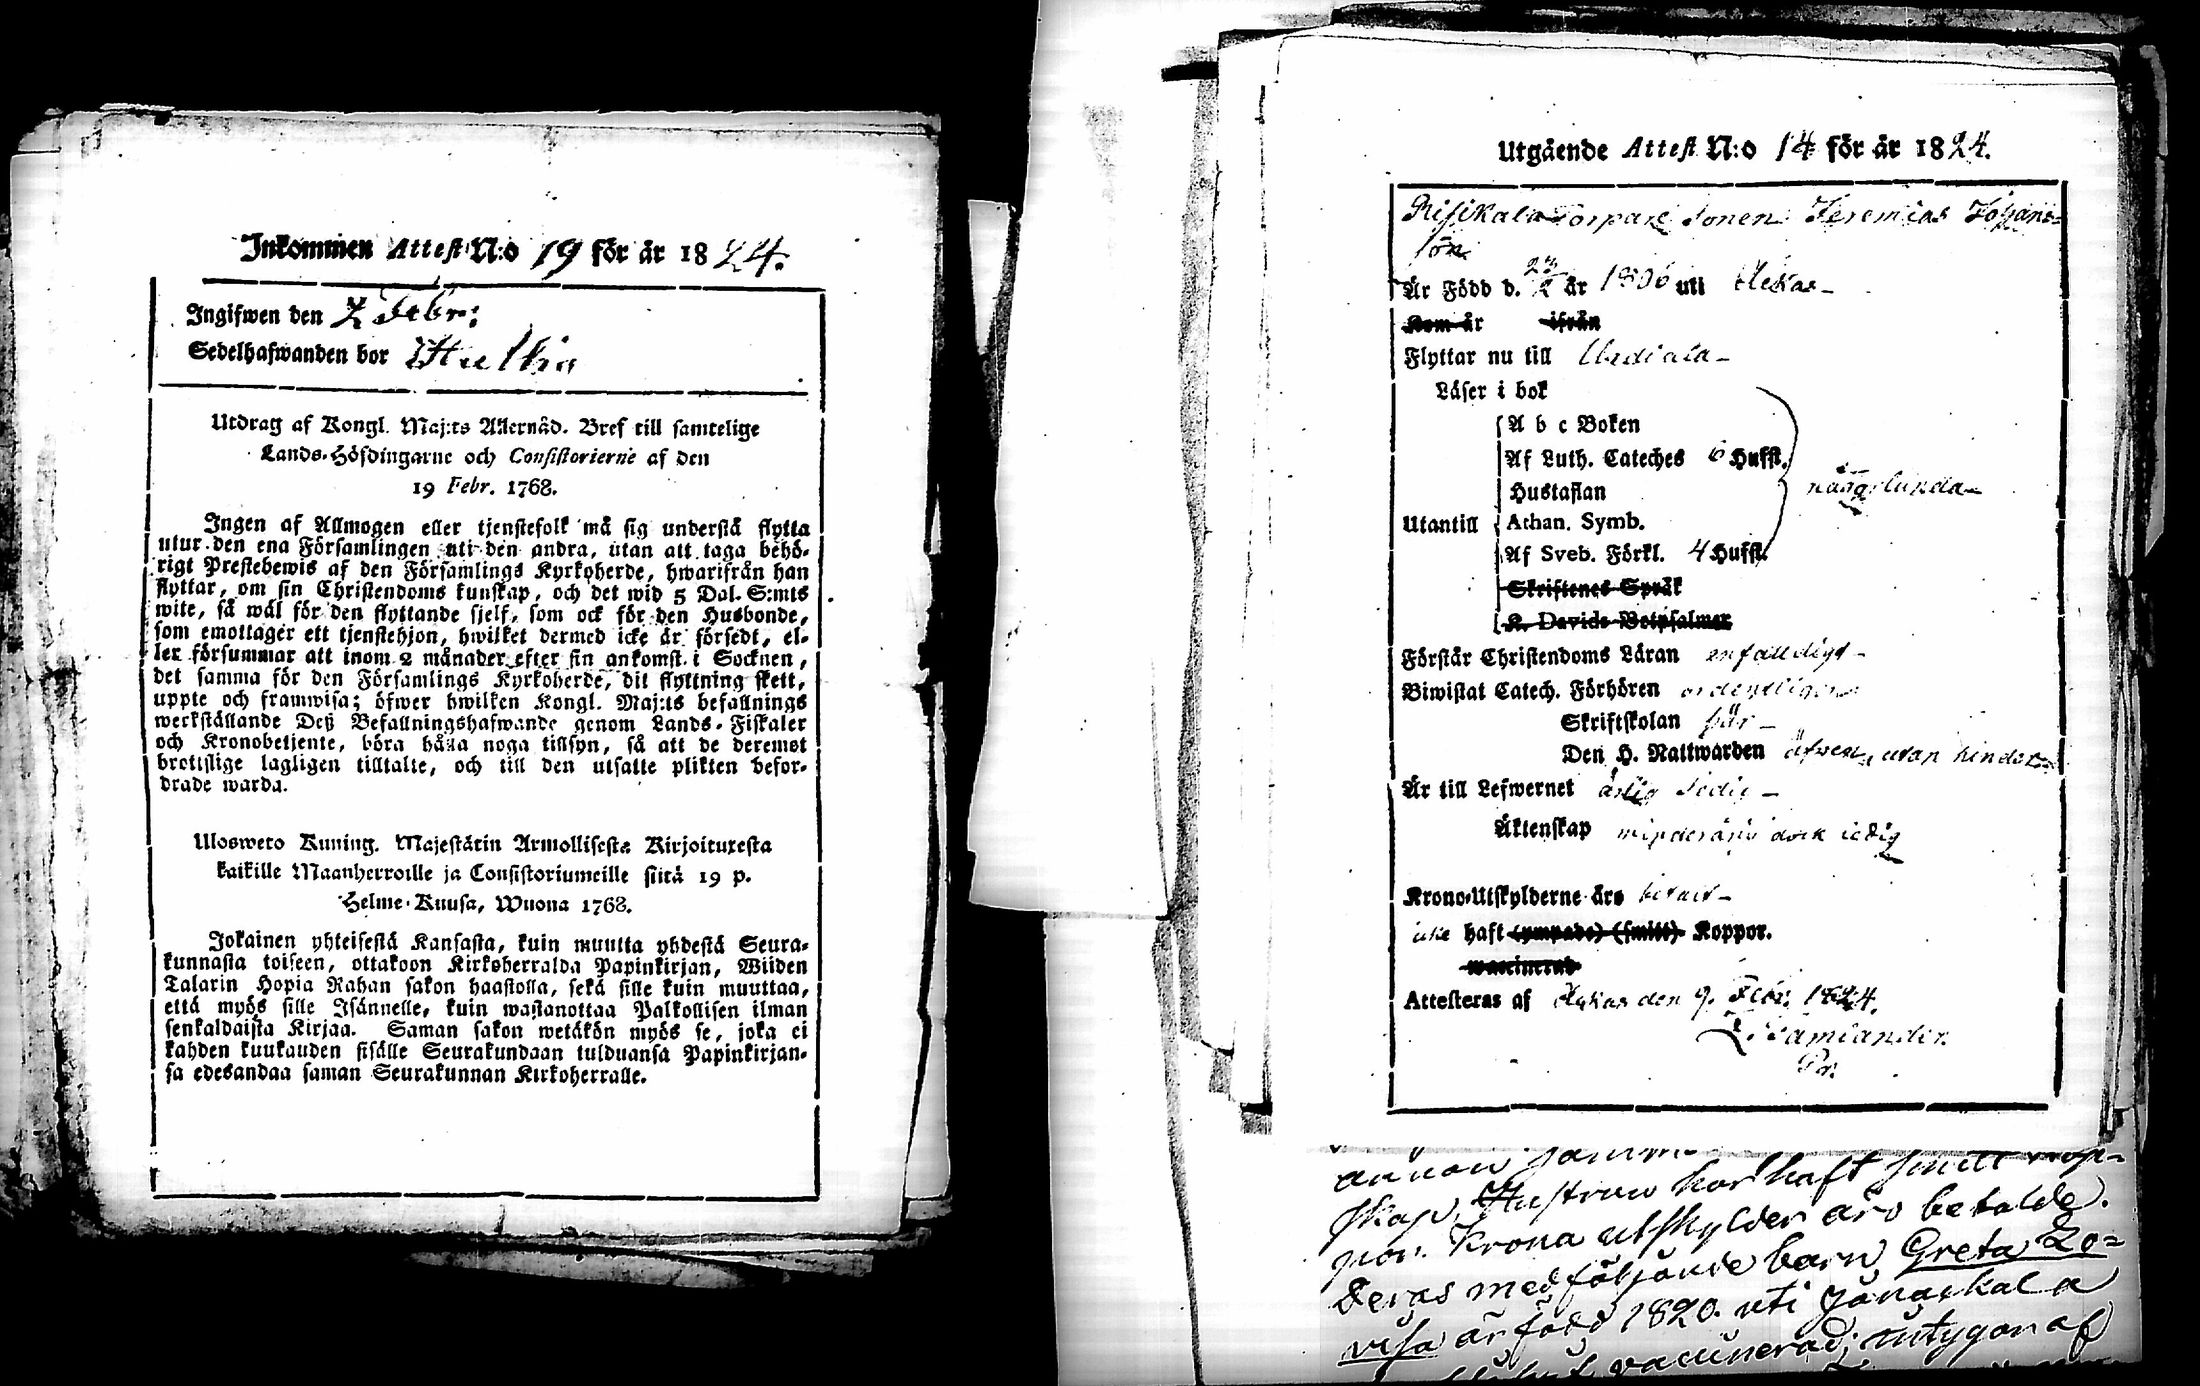 Inkommen Attest N:o 19 för år 1824.
Ingifwen den 7 Febr:
Sedelhafwanden bor Hulkia
Utdrag af Kongl. Maj:ts Allernåd. Bref till samtelige
Lands-Höfdingarne och Consistorierne af den
19 Febr. 1768.
Ingen af Allmogen eller tjenstefolk må sig understå flytta
utur den ena Församlingen uti den andra, utan att taga behö-
rigt Prestebewis af den Församlings Kyrkoherde, hwarifrån han
flyttar, om sin Christendoms kunskap, och det wid 5 Dal. S:mts
wite, så wäl för den flyttande sjelf, som ock för den Husbonde,
som emottager ett tjenstehjon, hwilket dermed icke är försedt, el-
ler försummar att inom 2 månader efter sin ankomst i Socknen,
det samma för den Församlings Kyrkoherde, dit flyttning skett,
uppte och framwisa; öfwer hwilken Kongl. Maj:ts befallnings
werkställande Deß Befallningshafwande genom Lands-Fiskaler
och Kronobetjente, böra hålla noga tillsyn, så att de deremot
brottslige lagligen tilltalte, och till den utsatte plikten befor-
drade warda.
Ulosweto Kuning. Majestätin Armollisesta Kirjoituxesta
kaikille Maanherroille ja Consistoriumeille siitä 19 p.
Helme-Kuusa, Wuona 1768.
Jokainen yhteisestä Kansasta, kuin muutta yhdestä Seura-
kunnasta toiseen, ottakoon Kirkoherralda Papinkirjan, Wiiden
Talarin Hopia Rahan sakon haastolla, sekä sille kuin muuttaa,
että myös sille Isännelle, kuin wastanottaa Palkollisen ilman
senkaldaista Kirjaa. Saman sakon wetäkön myös se, joka ei
kahden kuukauden sisälle Seurakundaan tulduansa Papinkirjan-
sa edesandaa saman Seurakunnan Kirkoherralle.
Utgående Attest N:o 14 för år 1824.
Risikala Torpare Sonen Jeremias Johans-
son
Är Född d. 23/2 år 1806 uti Akas
Kom år ifrån
Flyttar nu till Urdiala
Läser i bok
A b c Boken
Af Luth. Cateches 6 Hufst.
Hustaflan
nöjagtlunda
Utantill Athan. Symb.
Af Sveb. Förkl. 4 Hufst.
Skriftenes Språk
K. Davids Botpsalmer
Förstår Christendoms Läran enfaldigt
Biwistat Catech. Förhören ordentligen
Skriftskolan här
Den H. Nattwarden äfwen, utan hinder
Är till Lefwernet ärlig Sedig
Äktenskap minderårig dock ledig
Krono-Utskylderne äro betalt
icke haft (ympade) (smitt) Koppor.
waccinerad
Attesteras af Akas den 9. Febr. 1824.
Pr.
annan
skap, Hustrun har haft smitt kop-
por. Krona utskylder äro betalde.
Deras medföljande barn Greta Lo-
visa är född 1820. uti Jänaskala
vaccinerad; intygar af